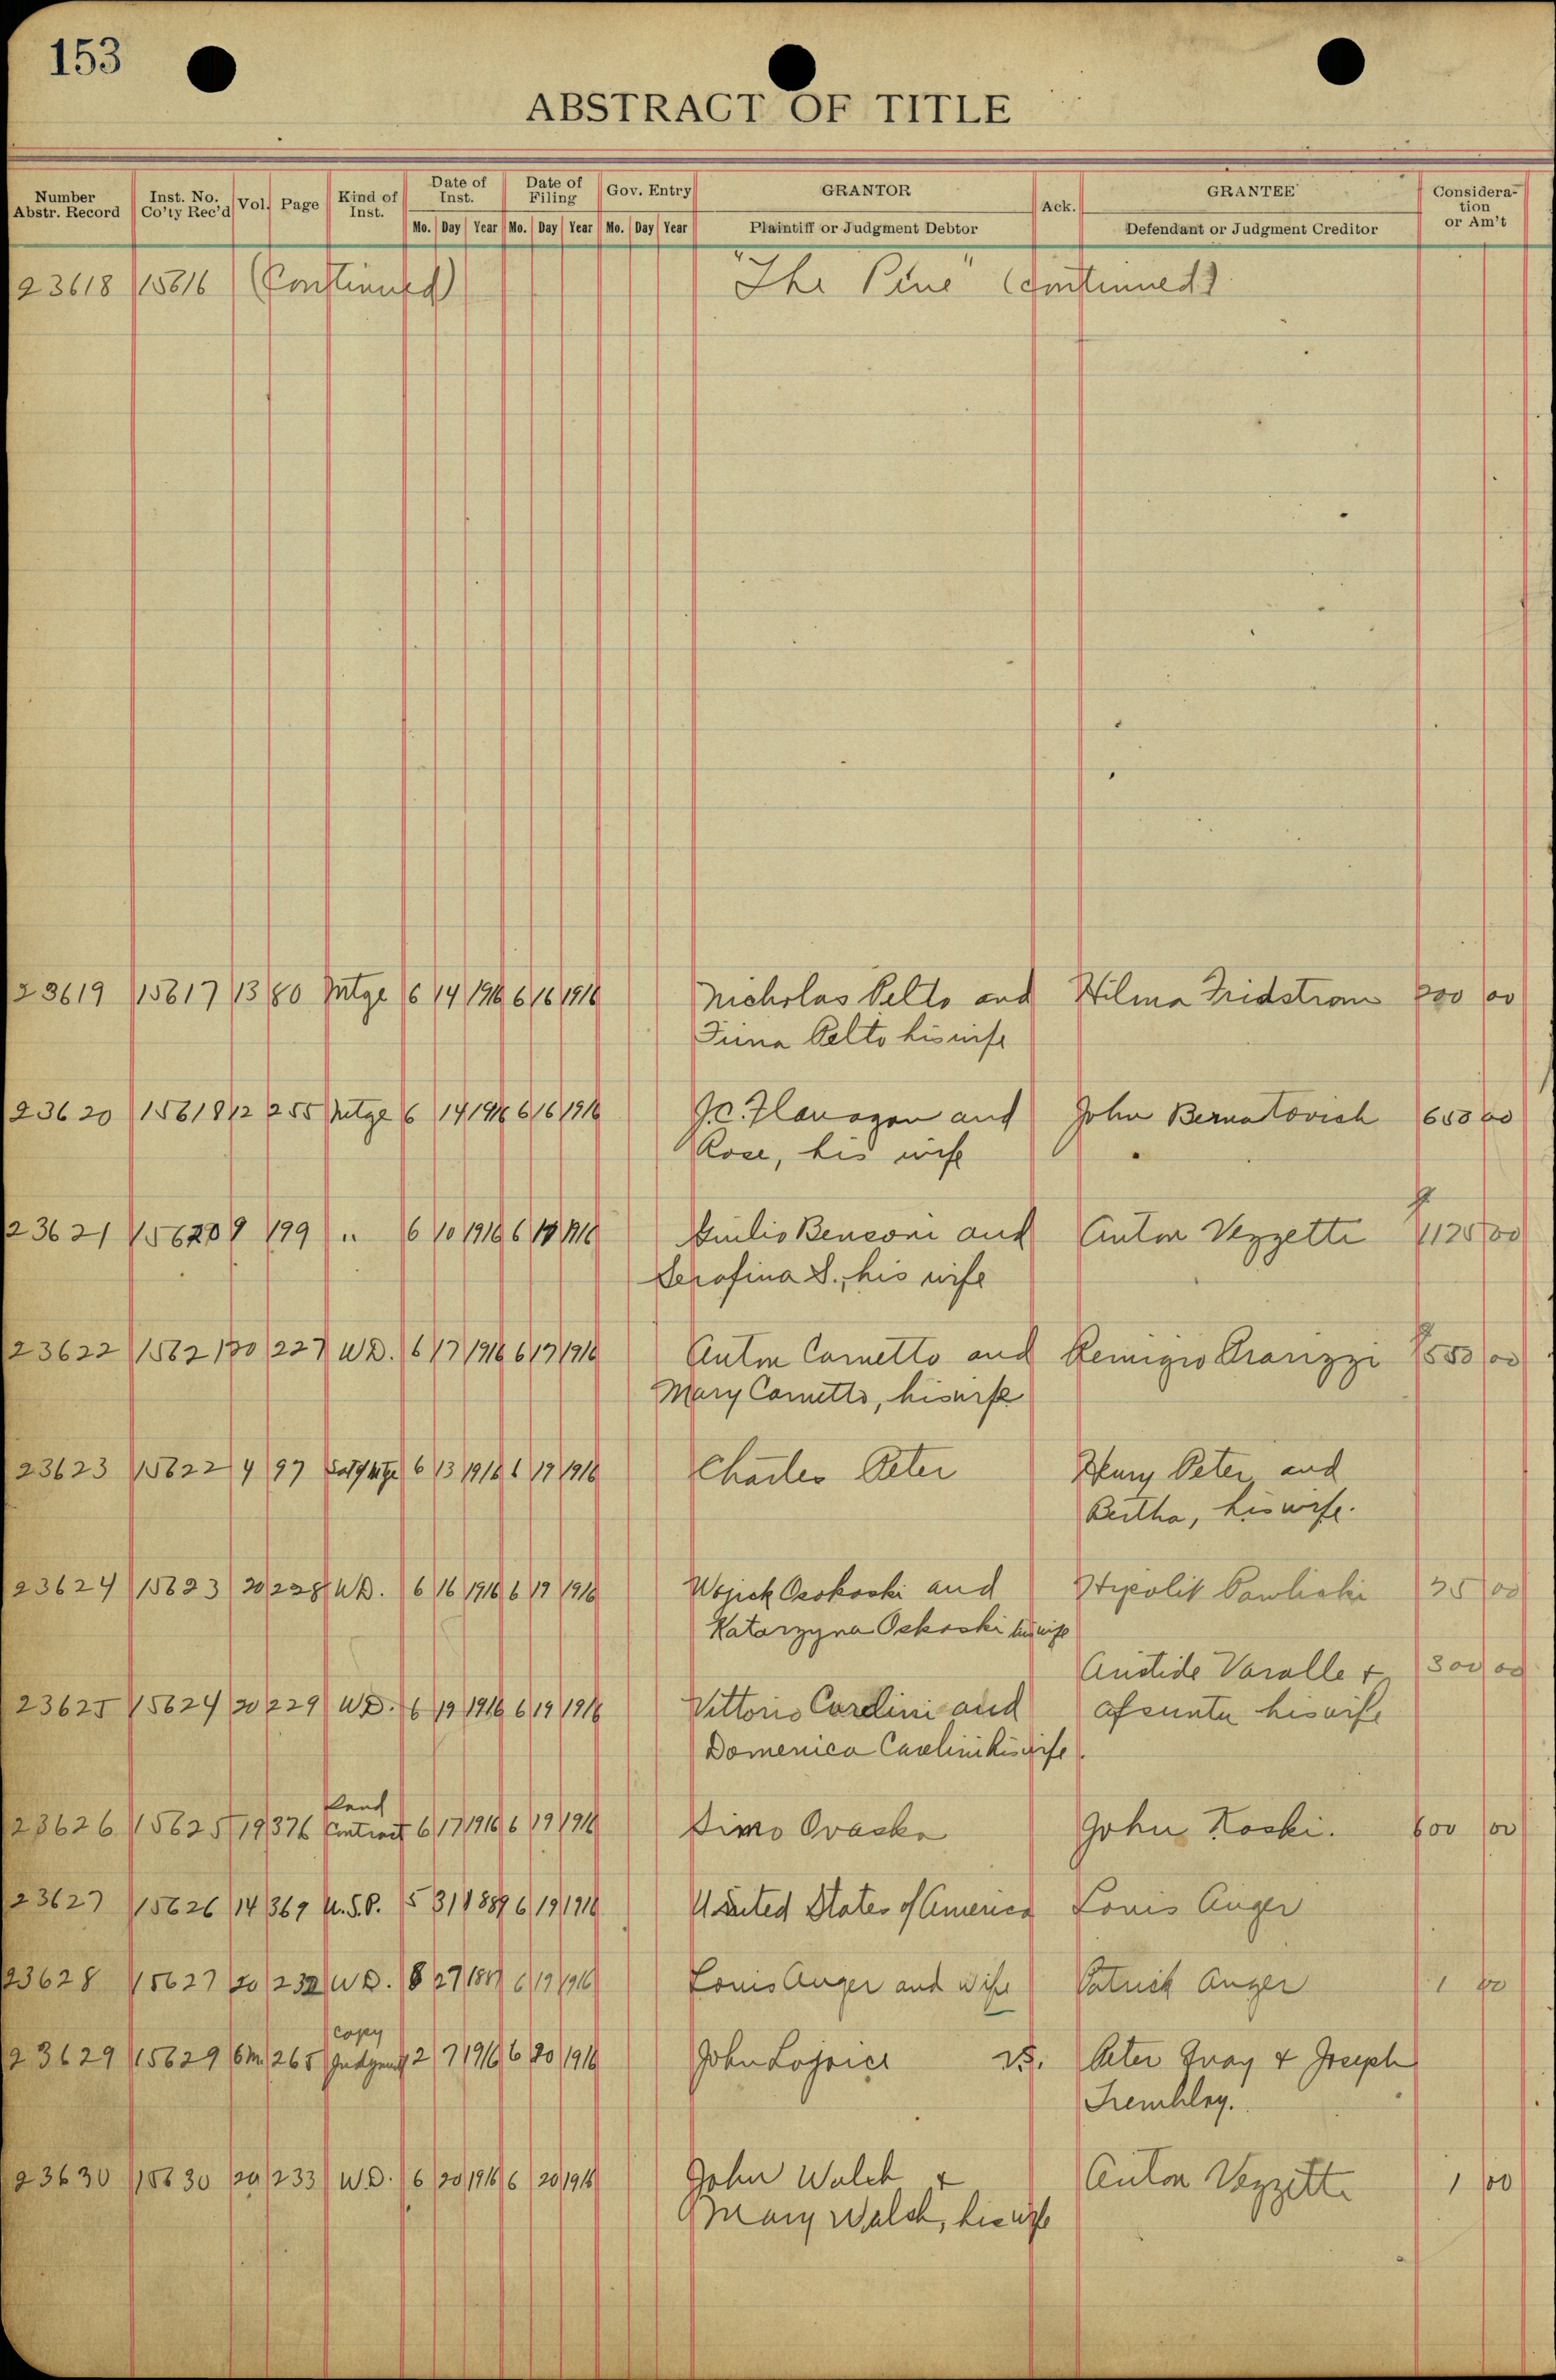 153
ABSTRACT OF TITLE
Number Abstr. Record | Inst. No. Co'ty Rec'd | Vol. | Page | Kind of Inst. | Date of Inst. Mo. Day Year | Date of Filing Mo. Day Year | Gov. Entry Mo. Day Year | GRANTOR Plaintiff or Judgment Debtor | Ack. | GRANTEE Defendant or Judgment Creditor | Consideration or Am't
23618 15616 (Continued) "The Pine" (Continued)
23619 15617 13 80 Mtge 6 14 1916 6 16 1916 Nicholas Pelto and Hilma Fridstrom 200 00
Fiina Pelto his wife
23620 15618 12 255 Mtge 6 14 1916 6 16 1916 J.C. Flanagan and John Bernatovich 650 00
Rose, his wife
23621 15620 9 199 " 6 10 1916 6 17 1916 Giulio Benzoni and Anton Vezzetti 1125 00
Serafina S., his wife
23622 15621 20 227 W.D. 6 17 1916 6 17 1916 Anton Cometto and Remigio 550 00
Mary Cometto, his wife
23623 15622 4 97 Sat of Mtge 6 13 1916 6 19 1916 Charles Peter Henry Peter and
Bertha, his wife.
23624 15623 20 228 W.D. 6 16 1916 6 19 1916 Wojick and Hipolit Pawlishi 25 00
Katarzyna his wife
Aristide Varalle & 300 00
23625 15624 20 229 W.D. 6 19 1916 6 19 1916 Vittorio Carelini and his wife
Domenica Carelini his wife
Land
23626 15625 19 376 Contract 6 17 1916 6 19 1916 Simo Ovaska John Koski. 600 00
23627 15626 14 369 U.S.P. 5 31 1889 6 19 1916 United States of America Louis Anger
23628 15627 20 232 W.D. 8 27 6 19 1916 Louis Anger and wife Patrick Anger 1 00
copy
23629 15629 6m 265 Judgment 2 7 1916 6 20 1916 John vs. Peter Gray & Joseph
Tremblay.
23630 15630 20 233 W.D. 6 20 1916 6 20 1916 John Walsh & Anton Vezzetti 1 00
Mary Walsh, his wife